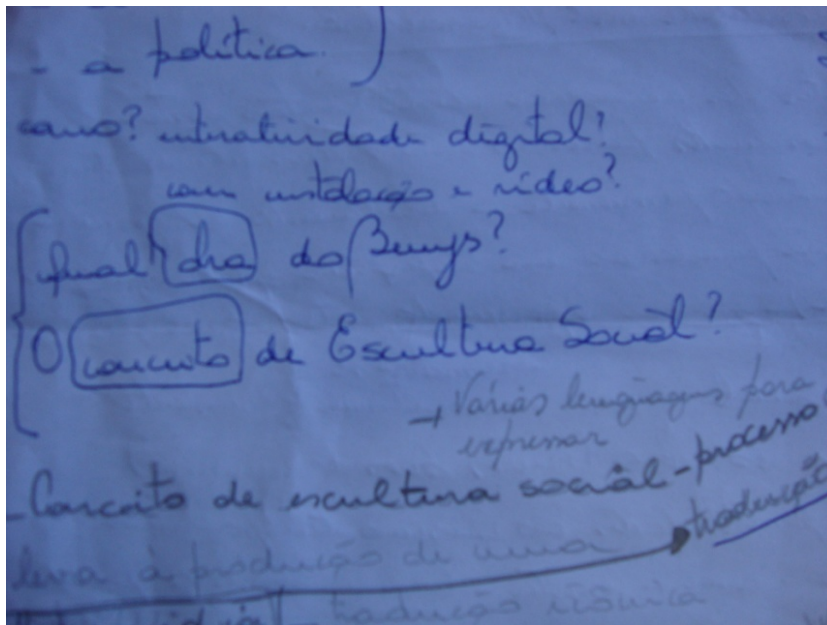 - a política.
como? interatividade digital?
com instalação e vídeo?
qual obra do Beuys?
O conceito de Escultura Social?
→ Várias linguagens para
expressar
- Conceito de escultura social - processo
tradução
leva à produção de uma
tradução icônica